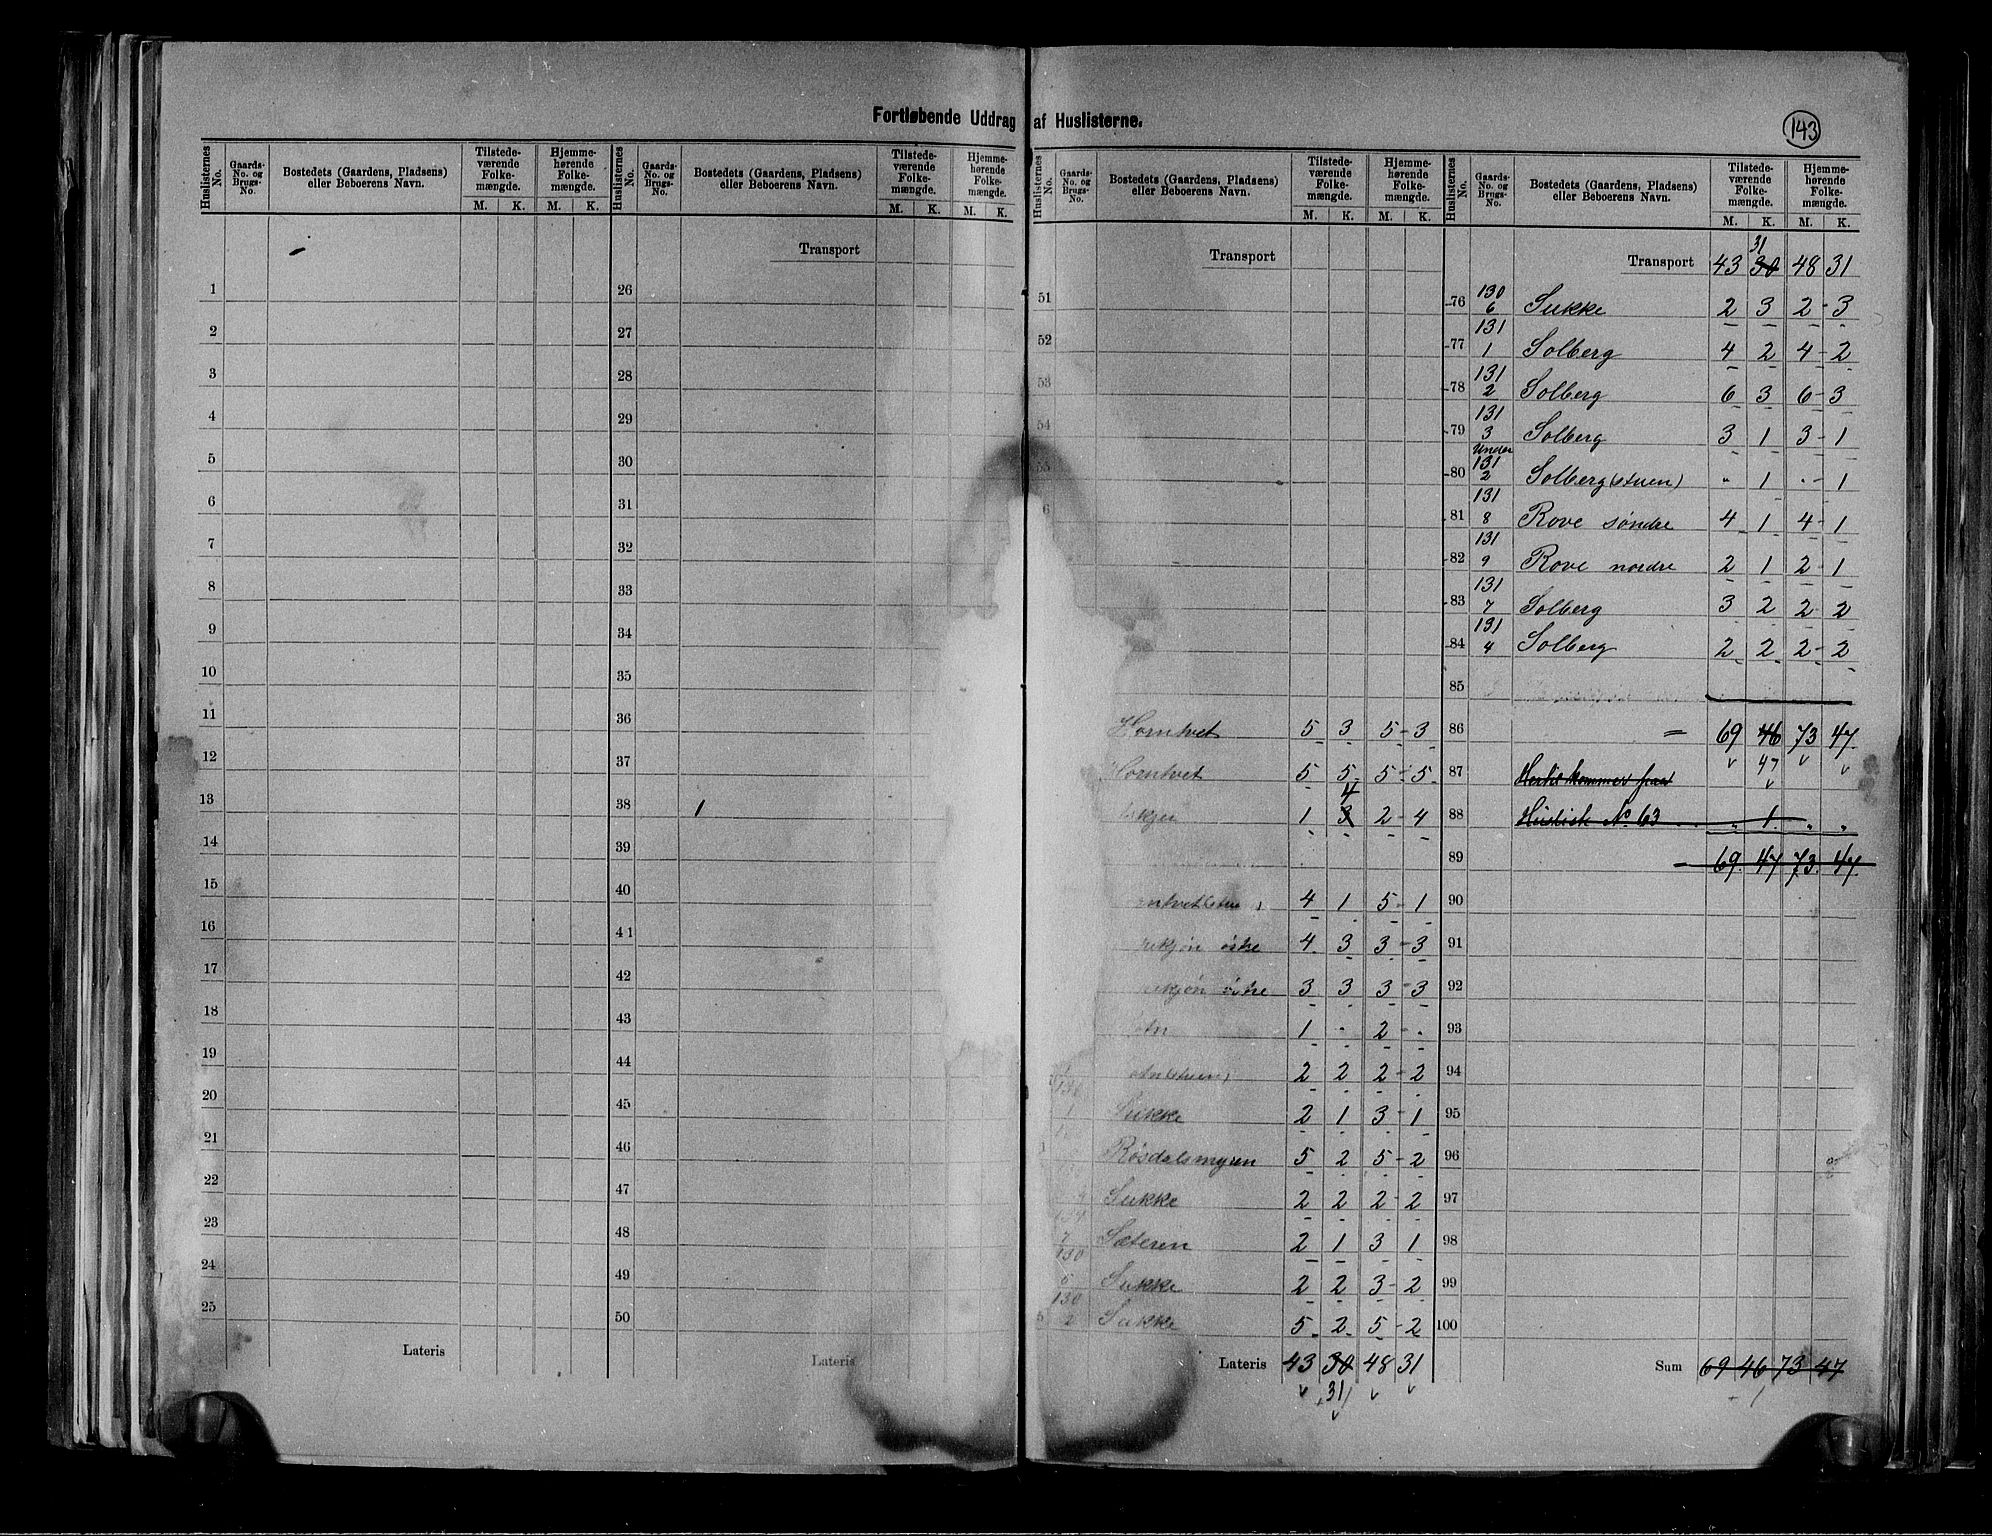 Fortløbende Uddrag af Huslisterne.
143
Huslisternes No. Gaards-No. og Brugs-No. Bostedets (Gaardens, Pladsens) eller Beboerens Navn. Tilstedeværende Folkemængde. M. K. Hjemmehørende Folkemængde. M. K.
Huslisternes No. Gaards-No. og Brugs-No. Bostedets (Gaardens, Pladsens) eller Beboerens Navn. Tilstedeværende Folkemængde. M. K. Hjemmehørende Folkemængde. M. K.
1
2
3
4
5
6
7
8
9
10
11
12
13
14
15
16
17
18
19
20
21
22
23
24
25
Lateris
Transport
26
27
28
29
30
31
32
33
34
35
36
37
38
39
40
41
42
43
44
45
46
47
48
49
50
Lateris
Huslisternes No. Gaards-No. og Brugs-No. Bostedets (Gaardens, Pladsens) eller Beboerens Navn. Tilstedeværende Folkemængde. M. K. Hjemmehørende Folkemængde. M. K.
Huslisternes No. Gaards-No. og Brugs-No. Bostedets (Gaardens, Pladsens) eller Beboerens Navn. Tilstedeværende Folkemængde. M. K. Hjemmehørende Folkemængde. M. K.
Transport
51
52
53
54
55
6
Horntvet 5 3 5 - 3
Horntvet 5 5 5 - 5
4
1 3 2 - 4
4 1 5 - 1
østre 4 3 3 - 3
østre 3 3 3 - 3
1 " 2 - "
2 2 2 - 2
Sukke 2 1 3 - 1
Røsdalsmyren 5 2 5 - 2
Sukke 2 2 2 - 2
7 Sæteren 2 1 3 1
130
5 Sukke 2 2 3 - 2
130
2 Sukke 5 2 5 - 2
Lateris 43 30 48 31
31
31
Transport 43 30 48 31
76 130 6 Sukke 2 3 2 - 3
77 131 1 Solberg 4 2 4 - 2
78 131 2 Solberg 6 3 6 - 3
79 131 3 Solberg 3 1 3 - 1
80 Under 131 2 Solberg (stuen) " 1 " - 1
81 131 8 Rove søndre 4 1 4 - 1
82 131 9 Rove nordre 2 1 2 - 1
83 131 7 Solberg 3 2 2 - 2
84 131 4 Solberg 2 2 2 - 2
85
86 = 69 46 73 47
47
87 Hertil kommer fra
88 Huslist No 63 " 1 " "
89 = 69 47 73 47
90
91
92
93
94
95
96
97
98
99
100
Sum 69 46 73 47